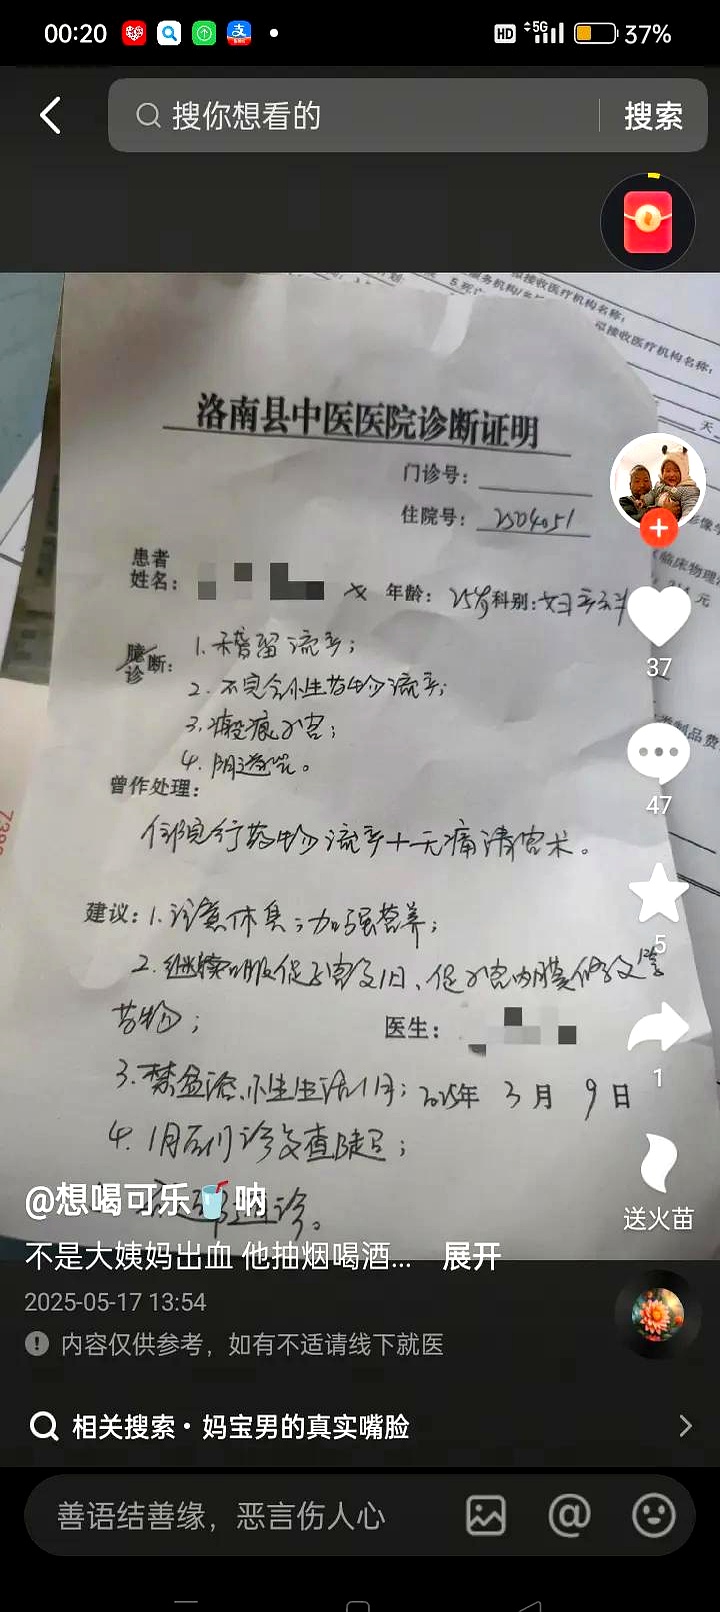 00:20
HD 5G 37%
搜你想看的
搜索
服务机构/
拟接收医疗机构名称：
拟接收医疗机构名称：
天
洛南县中医医院诊断证明
门诊号：
住院号：2504051
患者
姓名：
女 年龄：25岁 科别：妇产科
诊断：
1.稽留流产；
2.不完全性药物流产；
3.瘢痕子宫；
4.阴道炎。
曾作处理：
住院行药物流产+无痛清宫术。
建议：1.注意休息；加强营养；
2.继续口服促子宫复旧、促子宫内膜修复等
药物；
医生：
3.禁盆浴、性生活1月；
2025年 3月 9日
4.1月后门诊复查随
诊。
37
47
5
1
送火苗
@想喝可乐🥤呐
不是大姨妈出血 他抽烟喝酒... 展开
2025-05-17 13:54
内容仅供参考，如有不适请线下就医
相关搜索·妈宝男的真实嘴脸
善语结善缘，恶言伤人心